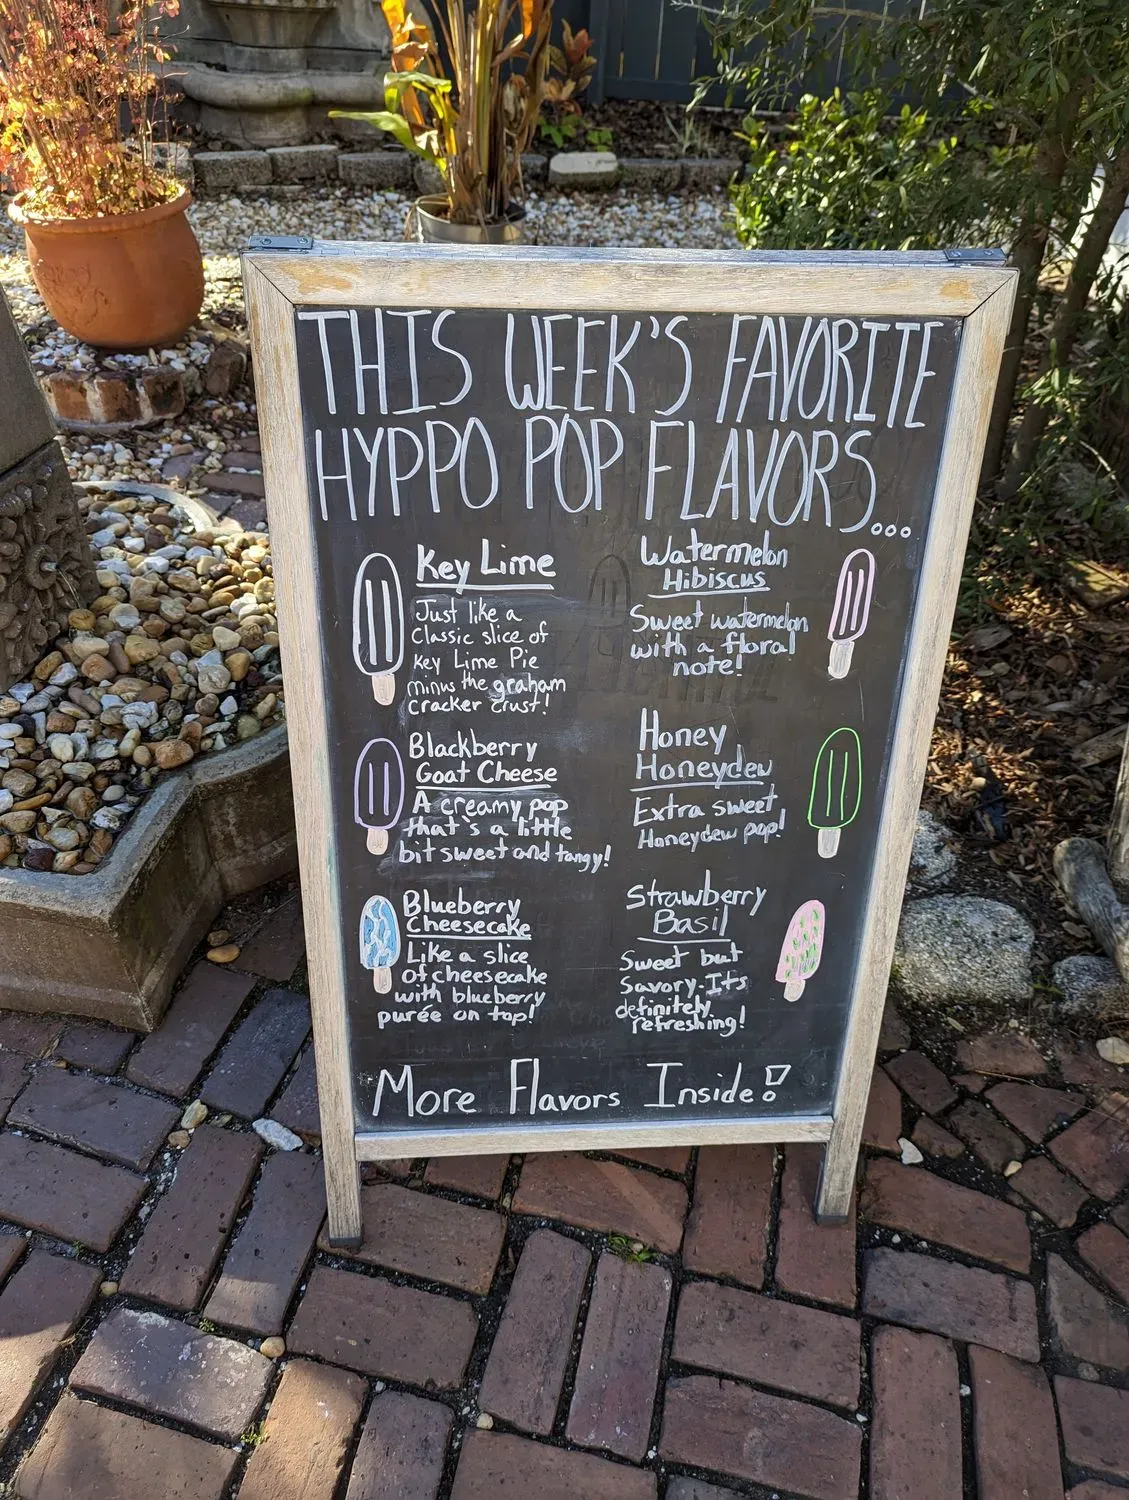 THIS WEEK'S FAVORITE
HYPPO POP FLAVORS...
Key Lime
Just like a
Classic slice of
Key Lime Pie
minus the graham
cracker crust!
Blackberry
Goat Cheese
A creamy pop
that's a little
bit sweet and tangy!
Blueberry
Cheesecake
Like a slice
of cheesecake
with blueberry
purée on top!
Watermelon
Hibiscus
Sweet watermelon
with a floral
note!
Honey
Honeydew
Extra sweet
Honeydew pop!
Strawberry
Basil
Sweet but
Savory. It's
definitely
refreshing!
More Flavors Inside!